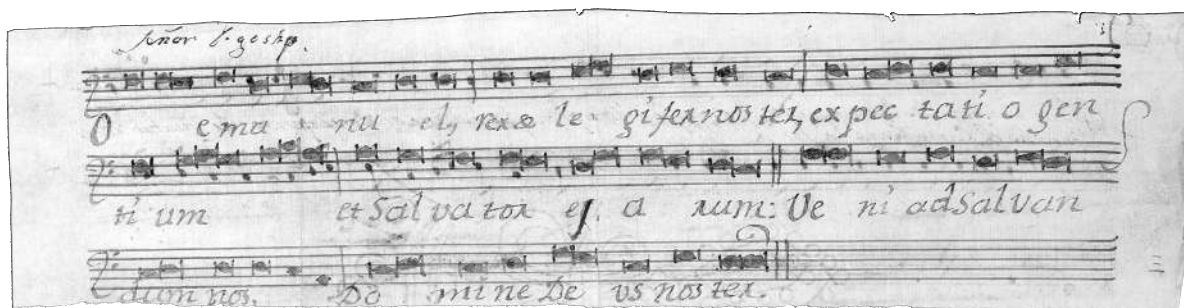 Señor
O ema nu el, rex & le gifer noster, expec tati o gen
ti um et Sal va tor ej, a rum: Ve ni ad Sal van
dum nos. Do mine De us noster.